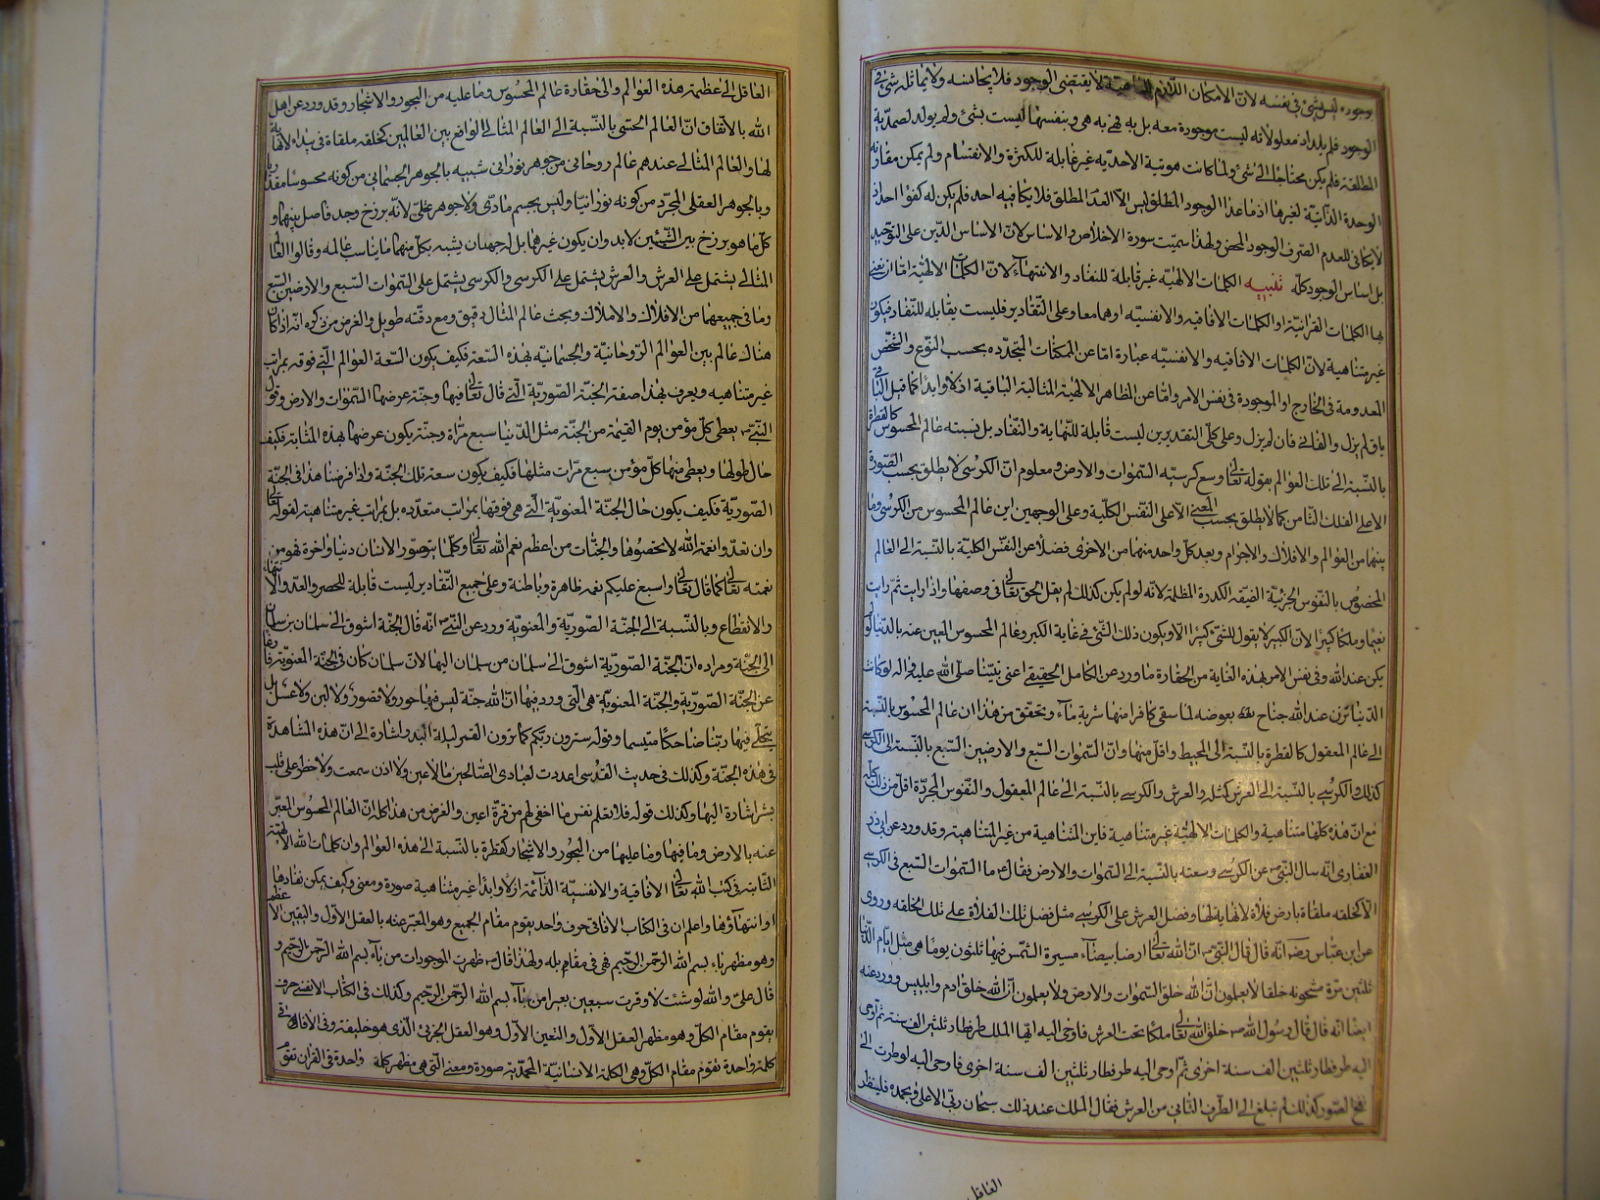 بوجوده ليس بشئ فى نفسه لان الامكان اللازم للماهية لا يقتضى الوجود فلا يجانسه ولا يماثله شئ فى
الوجود فلم يلد اذ معلولاته ليست موجودة معه بل به فهى به هى وبنفسها ليست بشئ ولم يولد لصمديته
المطلقة فلم يكن محتاجا الى شئ ولما كانت هويته الاحديه غير قابلة للكثرة والانقسام ولم يمكن مقارنة
الوحدة الذاتية لغيرها اذ ما عدا الوجود المطلق ليس الا العدم المطلق فلا يكافيه احد فلم يكن له كفوا احد اذ
لا يكافى للعدم الصرف الوجود المحض ولهذا سميت سورة الاخلاص والاساس لان الاساس الدين على التوحيد
بل اساس الوجود كله تنبيه الكلمات الالهية غير قابلة للنفاد والانتهاء لان الكلمات الالهية اما ان نعنى
بها الكلمات القرانية او الكلمات الافاقيه والانفسيه او هما معا وعلى التقادير فليست بقابله للنفاد فيكون
غير متناهية لان الكلمات الافاقيه والانفسيه عبارة اما عن الممكنات المتجدده بحسب النوع والشخص
المعدومة فى الخارج او الموجودة فى نفس الامر واما عن المظاهر الالهية المثالية الباقية ازلا وابدا كما قيل الباقى
باق لم يزل والفانى فان لم يزل وعلى كلى التقديرين ليست قابلة للنهاية والنفاد بل نسبته عالم المحسوس كالقطرة
بالنسبة الى تلك العوالم بقوله تعالى وسع كرسيه السموات والارض ومعلوم ان الكرسى لا يطلق بحسب الصورة
الا على الفلك الثامن كما لا يطلق بحسب المعنى الا على النفس الكلية وعلى الوجهين اين عالم المحسوس من الكرسى وما
بينهما من العوالم والافلاك والاجرام وبعد كل واحد منهما من الاخرى فضلا عن النفس الكلية بالنسبة الى العالم
المخصوص بالنفوس الجزئية الضيقه الكدرة المظلمة لانه لو لم يكن كذلك لم يقل الحق تعالى فى وصفها واذا رايت ثم رايت
نعيما وملكا كبيرا لان الكبير لا يقول للشئ كبيرا الا ويكون ذلك الشئ فى غاية الكبر وعالم المحسوس المعبر عنه بالدنيا لو لم
يكن عند الله وفى نفس الامر بهذه الغاية من الحقارة ما ورد عن الكامل الحقيقى اعنى نبينا صلى الله عليه واله لو كانت
الدنيا تزن عند الله جناح بعوضه لما سقى كافرا منها شربة ماء وتحقق من هذا ان عالم المحسوس بالنسبة
الى عالم المعقول كالقطرة بالنسبة الى المحيط واقل منها وان السموات السبع والارضين السبع بالنسبة الى الكرسى
كذلك والكرسى بالنسبة الى العرش كمثله والعرش والكرسى بالنسبة الى عالم المعقول والنفوس المجردة اقل من ذلك كله
مع ان هذه كلها متناهية والكلمات الالهية غير متناهية فاين المتناهية من غير المتناهية وقد ورد عن ابى ذر
الغفارى انه سال النبى ص عن الكرسى وسعته بالنسبة الى السموات والارض فقال ع ما السموات السبع فى الكرسى
الا كحلقه ملقاة بارض فلاة لا نهاية لها وفضل العرش على الكرسى مثل فضل تلك الفلاة على تلك الحلقه وروى
عن ابن عباس رضه انه قال قال النبى ص ان الله تعالى ارضا بيضاء مسيرة الشمس فيها ثلثون يوما هى مثل ايام الدنيا
ثلثين مرة مشحونه خلقا لا يعلمون ان الله خلق السموات والارض ولا يعلمون ان الله خلق ادم وابليس وورد عنه
ايضا انه قال قال رسول الله ص خلق الله تعالى ملكا تحت العرش فاوحى اليه ايها الملك طر فطار ثلثين الف سنة ثم اوحى
اليه طر فطار ثلثين الف سنة اخرى ثم اوحى اليه طر فطار ثلثين الف سنة اخرى فاوحى اليه لو طرت الى
نفخ الصور كذلك لم تبلغ الى الطرف الثانى من العرش فقال الملك عند ذلك سبحان ربى الاعلى وبحمده فلينظر
العاقل
العاقل الى عظمة هذه العوالم والى حقارة عالم المحسوس وما عليه من البحور والاشجار وقد ورد عن اهل
الله بالاتفاق ان العالم الحسى بالنسبة الى العالم المثالى الواقع بين العالمين كحلقه ملقاة فى بيداء لا نهاية
لها والعالم المثالى عندهم عالم روحانى من جوهر نورانى شبيه بالجوهر الجسمانى من كونه محسوسا مقداريا
وبالجوهر العقلى المجرد من كونه نورانيا وليس بجسم مادى ولا جوهر عقلى لانه برزخ وحد فاصل بينهما و
كل ما هو برزخ بين الشيئين لا بد وان يكون غيرهما بل له جهتان يشبه بكل منهما ما يناسب عالمه وقالوا العالم
المثالى يشتمل على العرش والعرش يشتمل على الكرسى والكرسى يشتمل على السموات السبع والارضين السبع
وما فى جميعها من الافلاك والاملاك وبحث عالم المثال دقيق ومع دقته طويل والغرض من ذكره انه اذا كان
هناك عالم بين العوالم الروحانية والجسمانيه بهذه السعة فكيف يكون السعة العوالم التى فوقه بمراتب
غير متناهيه ويعرف بهذا صفة الجنة الصورية التى قال تعالى فيها وجنة عرضها السموات والارض وقول
النبى ص يعطى كل مؤمن يوم القيمة من الجنة مثل الدنيا سبع مراة وجنة يكون عرضها بهذه المثابة فكيف
حال طولها ويعطى منها كل مؤمن سبع مرات مثلها فكيف يكون سعة تلك الجنة واذا فرضنا هذا فى الجنة
الصورية فكيف يكون حال الجنة المعنوية التى هى فوقها بمراتب متعدده بل بمراتب غير متناهية لقوله تعالى
وان تعدوا نعمة الله لا تحصوها والجنات من اعظم نعم الله تعالى وكلما يتصور الانسان دنيا واخرة فهو من
نعمته تعالى كما قال تعالى واسبغ عليكم نعمه ظاهرة وباطنة وعلى جميع التقادير ليست قابلة للحصر والعد والانتهاء
والانقطاع وبالنسبة الى الجنة الصورية والمعنوية ورد عن النبى ص انه قال الجنة اشوق الى سلمان من سلمان
الى الجنة ومراده ان الجنة الصورية اشوق الى سلمان من سلمان اليها لان سلمان كان فى الجنة المعنوية فارغا
عن الجنة الصورية والجنة المعنوية هى التى ورد فيها ان الله جنة ليس فيها حور ولا قصور ولا لبن ولا عسل بل
يتجلى فيها ربنا ضاحكا متبسما وقوله سترون ربكم كما ترون القمر ليلة البدر اشارة الى ان هذه المشاهدة
فى هذه الجنة وكذلك فى حديث القدسى اعددت لعبادى الصالحين ما لا عين ولا اذن سمعت ولا خطر على قلب
بشر اشارة اليها وكذلك قوله فلا تعلم نفس ما اخفى لهم من قرة اعين والغرض من هذا كله ان العالم المحسوس المعبر
عنه بالارض وما فيها وما عليها من البحور والاشجار كقطرة بالنسبة الى هذه العوالم وان كلمات الله الالهية
الثابتة فى كتب الله تعالى الافاقية والانفسية الدائمة ازلا وابدا غير متناهية صورة ومعنى وكيف يمكن نفادها
او انتهاؤها واعلم ان فى الكتاب الافاقى حرف واحد يقوم مقام الجميع وهو المعبر عنه بالعقل الاول والتعين الاعظم
وهو مظهر باء بسم الله الرحمن الرحيم فهى فى مقام بله ولهذا قال ص ظهرت الموجودات من باء بسم الله الرحمن الرحيم و
قال على والله لو شئت لاوقرت سبعين بعيرا من باء بسم الله الرحمن الرحيم وكذلك فى الكتاب الانفسى حرف
يقوم مقام الكل وهو مظهر العقل الاول والتعين الاول وهو العقل الجزئى الذى هو خليفته وفى الافاق فى
كلمة واحدة تقوم مقام الكل وهى الكلمة الانسانية المحمدية صورة ومعنى التى هى مظهر كلمة واحدة فى القران تقوم